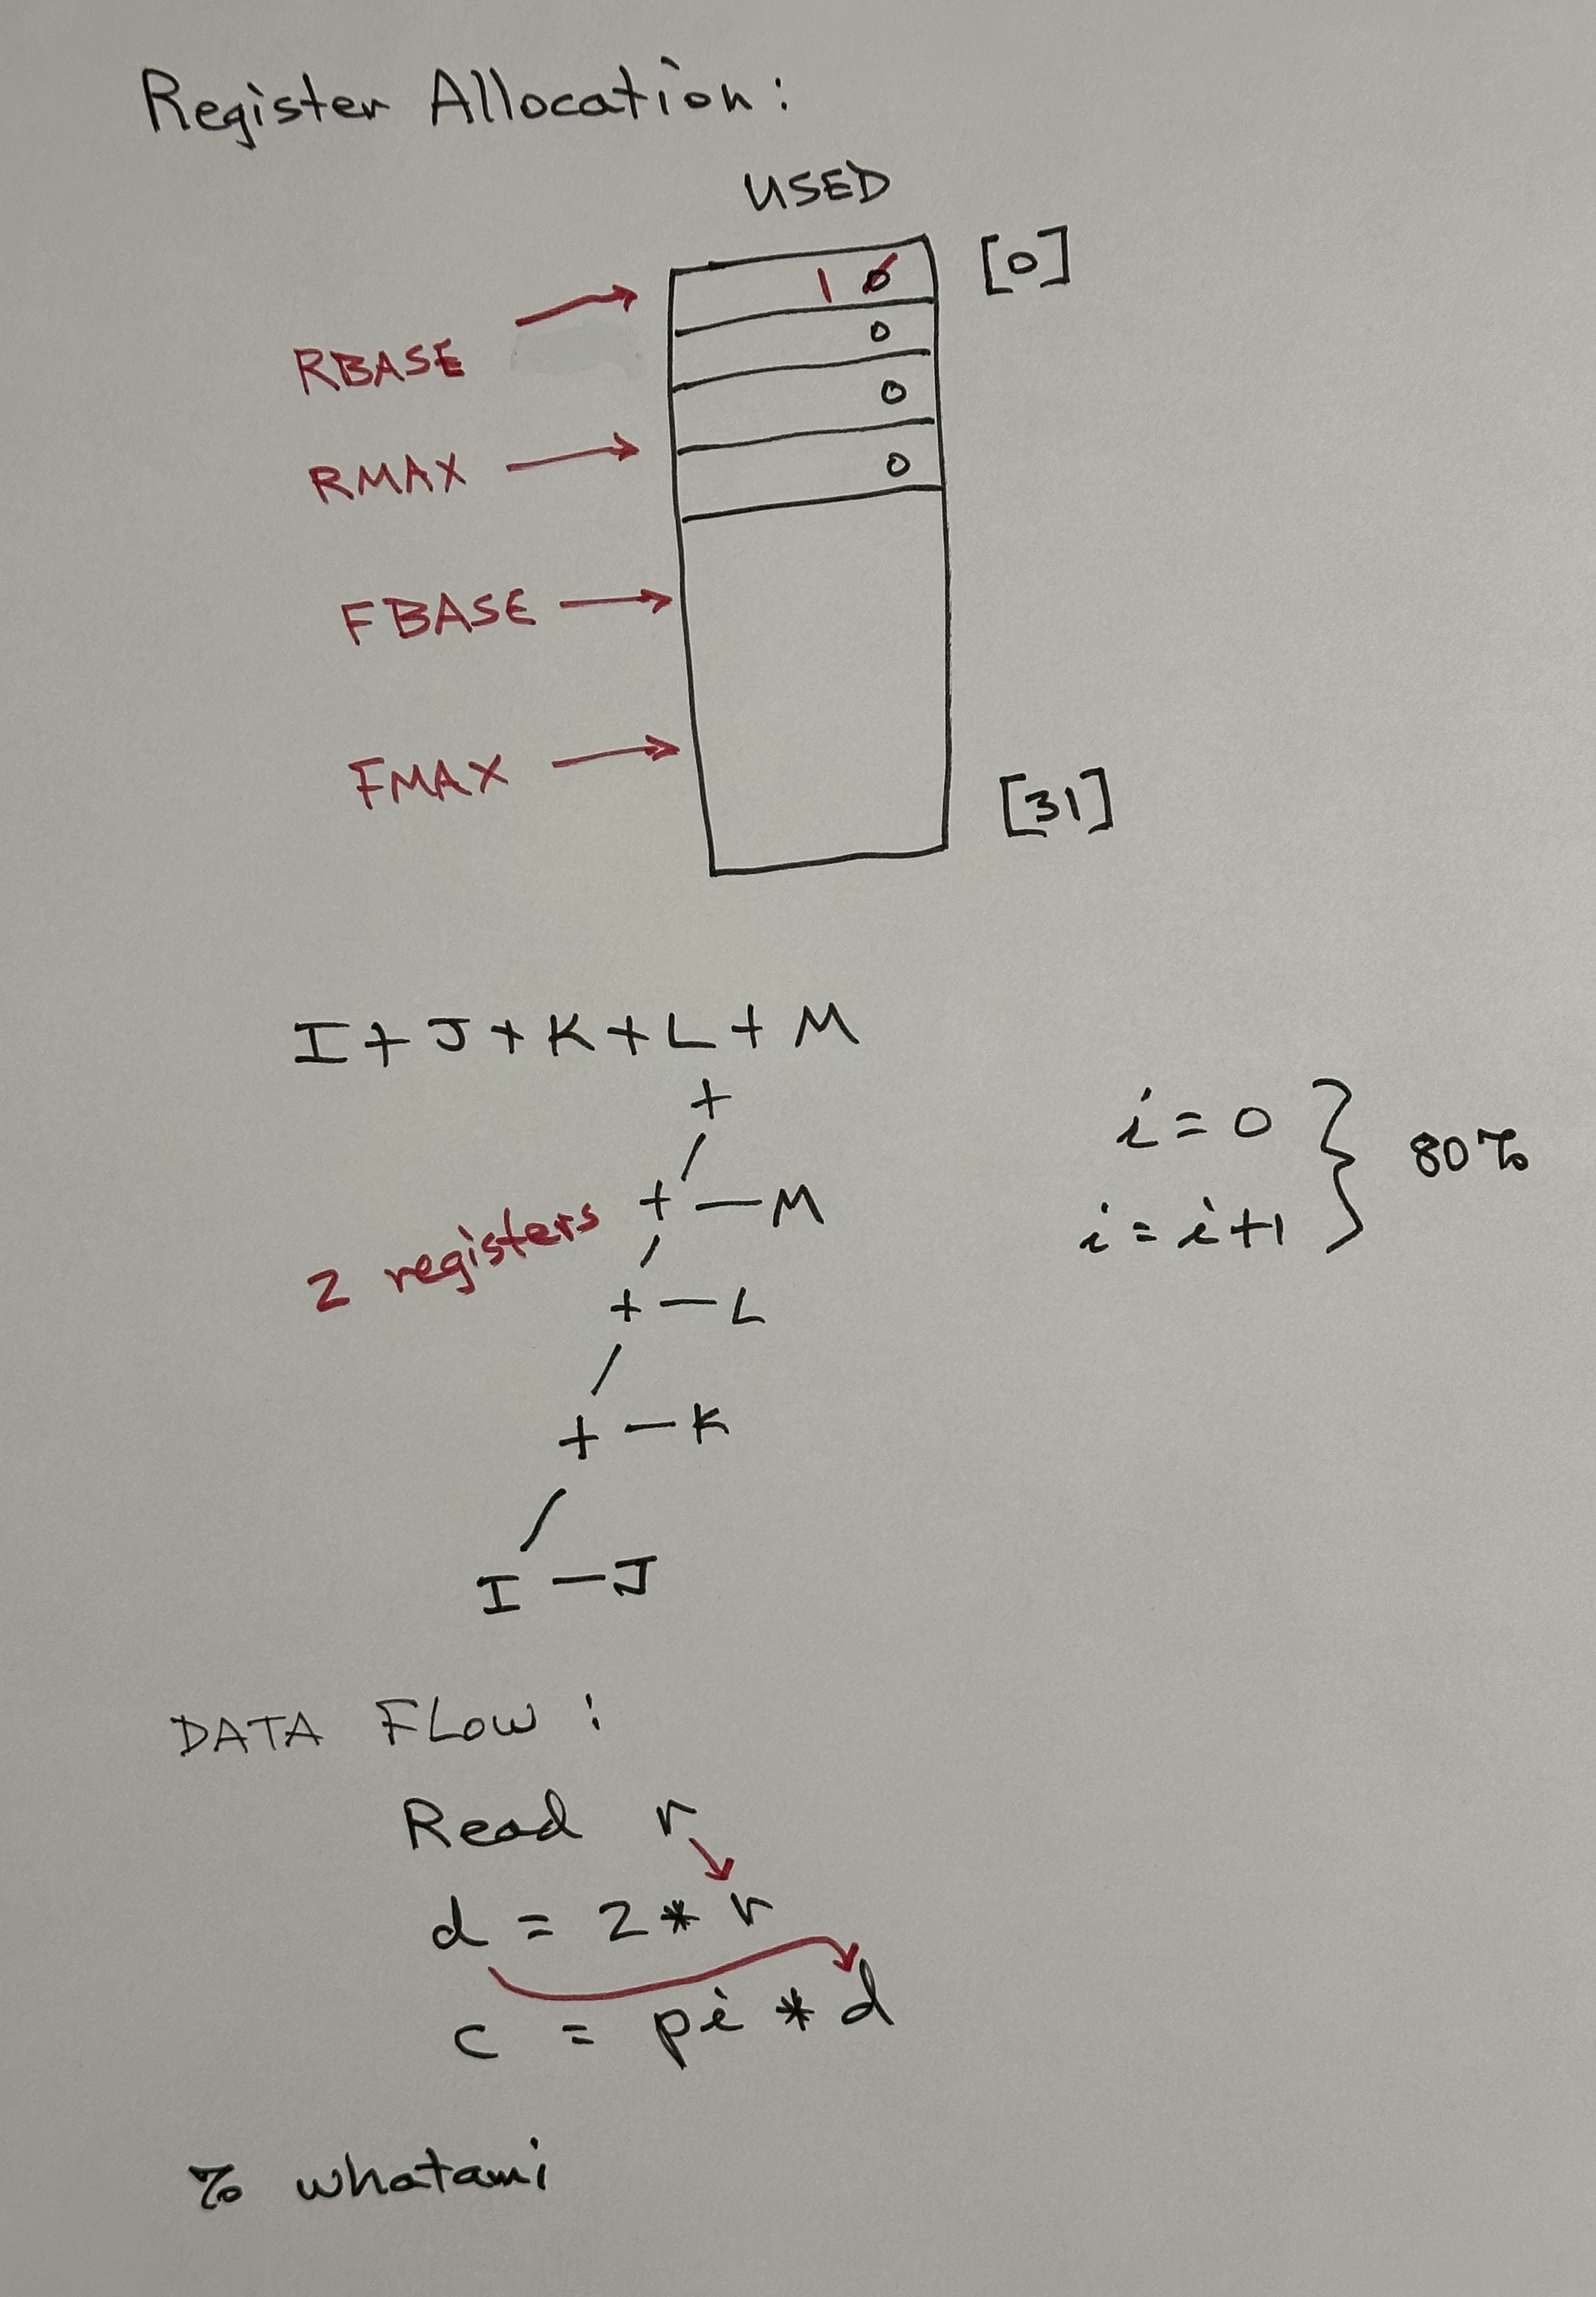 Register Allocation:
USED
[0]
1 0
RBASE
0
0
RMAX
0
FBASE
FMAX
[31]
I + J + K + L + M
+
+ — M
2 registers
+ — L
+ — K
I — J
i = 0
i = i + 1
80%
DATA FLOW:
Read r
d = 2 * r
c = pi * d
% whatami